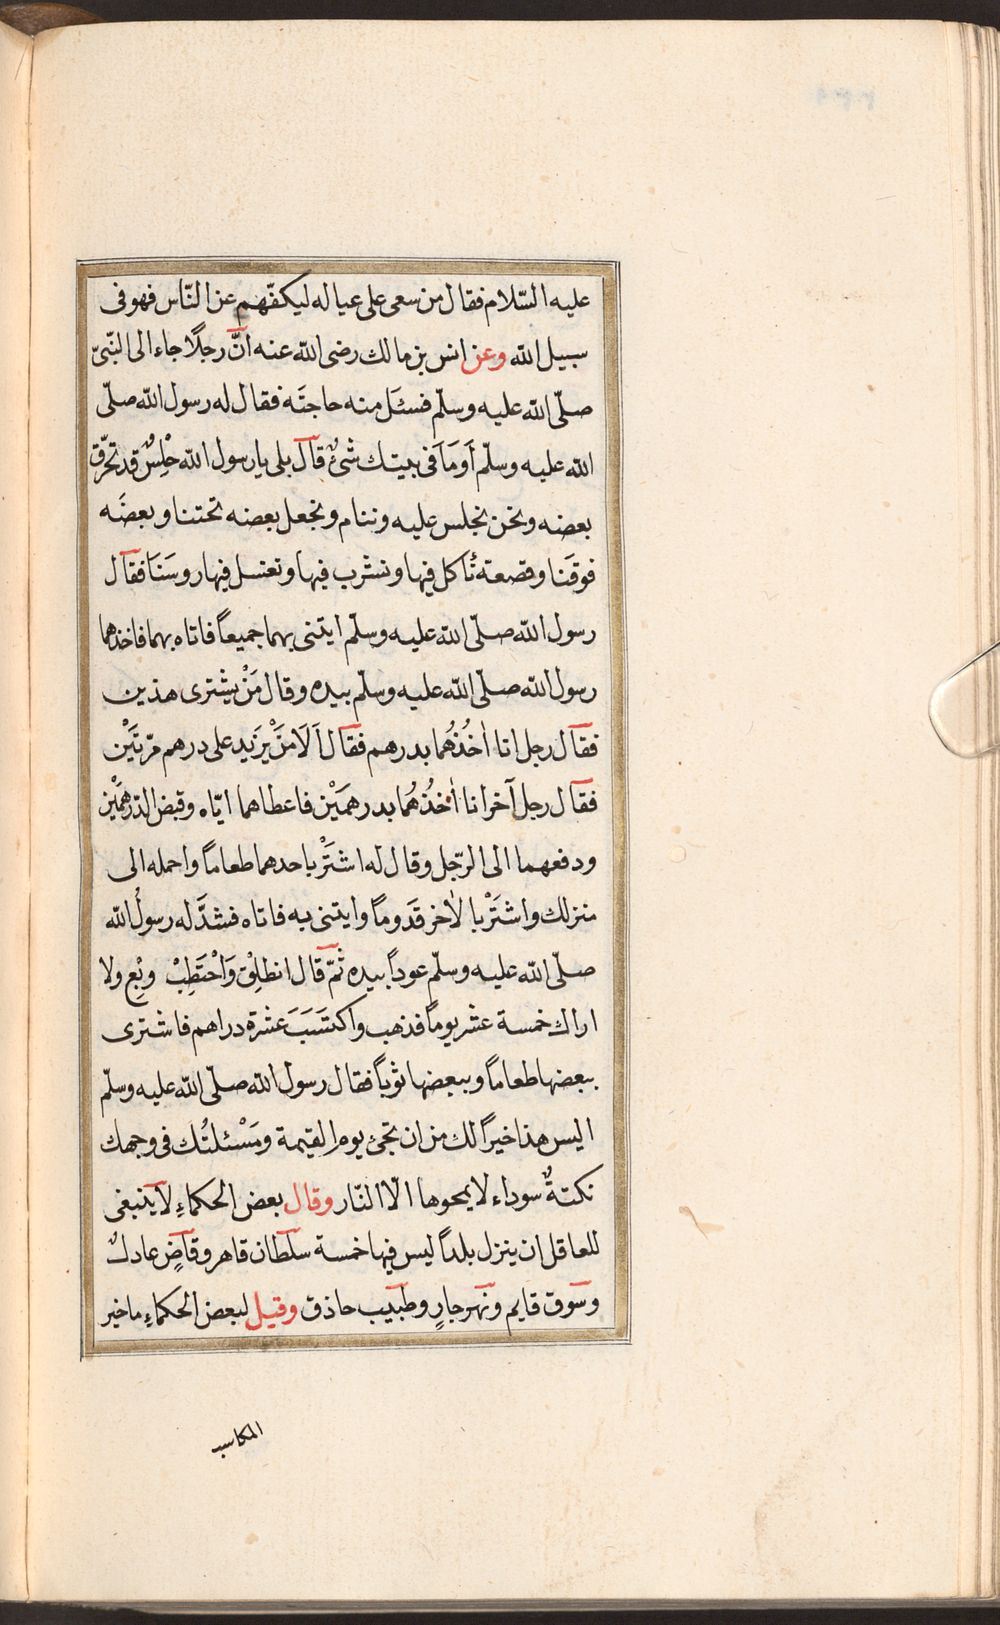 عليه السّلام فقال من سعى على عياله ليكفّهم عن النّاس فهو فى
سبيل الله وعن انس بن مالك رضى الله عنه انّ رجلًا جاء الى النّبىّ
صلّى الله عليه وسلّم فسئَل منه حاجتَه فقال له رسول الله صلّى
الله عليه وسلّم اَوَمَا فى بيتك شئٌ قال بلى يا رسول الله حِلْسٌ قد تخرّق
بعضه ونحن نجلس عليه وننام ونجعل بعضه تحتنا وبعضَه
فوقَنا وقصعة نأكل فيها ونشرب فيها ونغسل فيها روسَنَا فقال
رسول الله صلّى الله عليه وسلّم ايتنى بهما جميعاً فاتاه بهما فاخذهما
رسول الله صلّى الله عليه وسلّم بيده وقال مَنْ يشترى هذين
فقال رجل انا اٰخُذُهُما بدرهم فقال اَلَا مَنْ يَزيد على درهم مرّتَيْن
فقال رجل آخر انا اٰخذُهُما بدرهمَيْن فاعطاهما ايّاه وقبض الدّرهمَيْن
ودفعهما الى الرّجل وقال له اشتَرْ باحدهما طعاماً واحمله الى
منزلك واشتَرْ بالاٰخر قَدوماً وايتنى به فاتاه فشدَّ له رسولُ الله
صلّى الله عليه وسلّم عوداً بيده ثمّ قال انطلِقْ وَاحْتَطِبْ وبِع ولا
اراك خمسة عشر يوماً فذهب واكتسَبَ عشرة دراهم فاشترى
ببعضها طعاماً وببعضها ثوباً فقال رسول الله صلّى الله عليه وسلّم
اليس هذا خيراً لك من ان تجئ يوم القيمة ومَسْئلتُك فى وجهك
نكتةٌ سوداء لا يمحوها الّا النّار وقال بعض الحكماءِ لا ينبغى
للعاقل ان ينزل بلداً ليس فيها خمسة سلطان قاهر وقاضٍ عادلٌ
وسوق قايم ونهر جارٍ وطبيب حاذق وقيل لبعض الحكماءِ ما خير
المكاسب